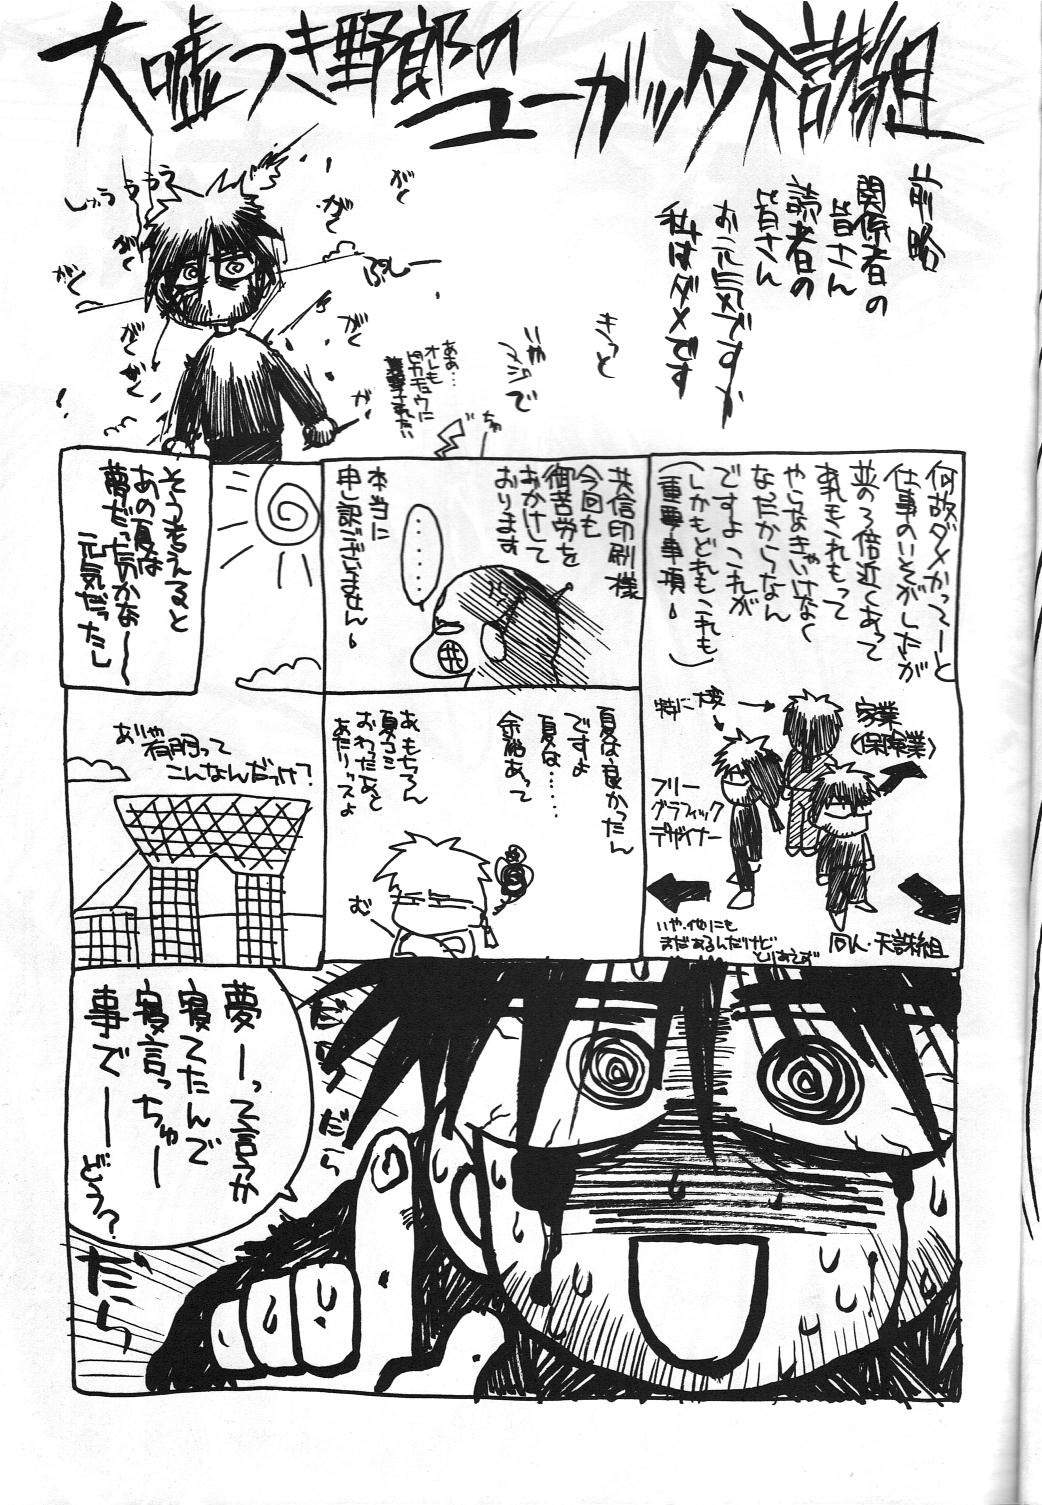 大嘘つき野郎の
ユーガッタ天誅組
前略
関係者の
皆さん
読者の
皆さん
お元気ですか
私はダメです
きっと
いや
マジで
ああ…
オレも
ピカチュウに
されたい
しゅうううう
がく
がく
がく
がく
がく
がく
がく
ぷしー
ぢゅ
何故ダメかってーと
仕事のいそがしさが
並の3倍近くあって
あれもこれもって
やらなきゃいけなく
なったからなん
ですよこれが
(しかもどれもこれも
重要事項!)
特に大変
家業
(保険業)
フリー
グラフィック
デザイナー
いや、他にも
まだあるんだけど
とりあえず
同人・天誅組
共信印刷様
今回も
御苦労を
おかけして
おります
本当に
申し訳ございません!
……
夏は良かったん
ですよ
夏は……
余裕あって
あ、もちろん
夏コミ
おわったあと
あたりッスよ
む
そう考えると
あの夏は
夢だったのかな〜
元気だったし
ありゃ
有明って
こんなんだっけ?
夢ーって言うか
寝てたんで
寝言っちゅー
事でー
どう?
だらだら
だら